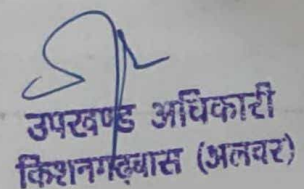 उपखण्ड अधिकारी
किशनगढ़बास (अलवर)